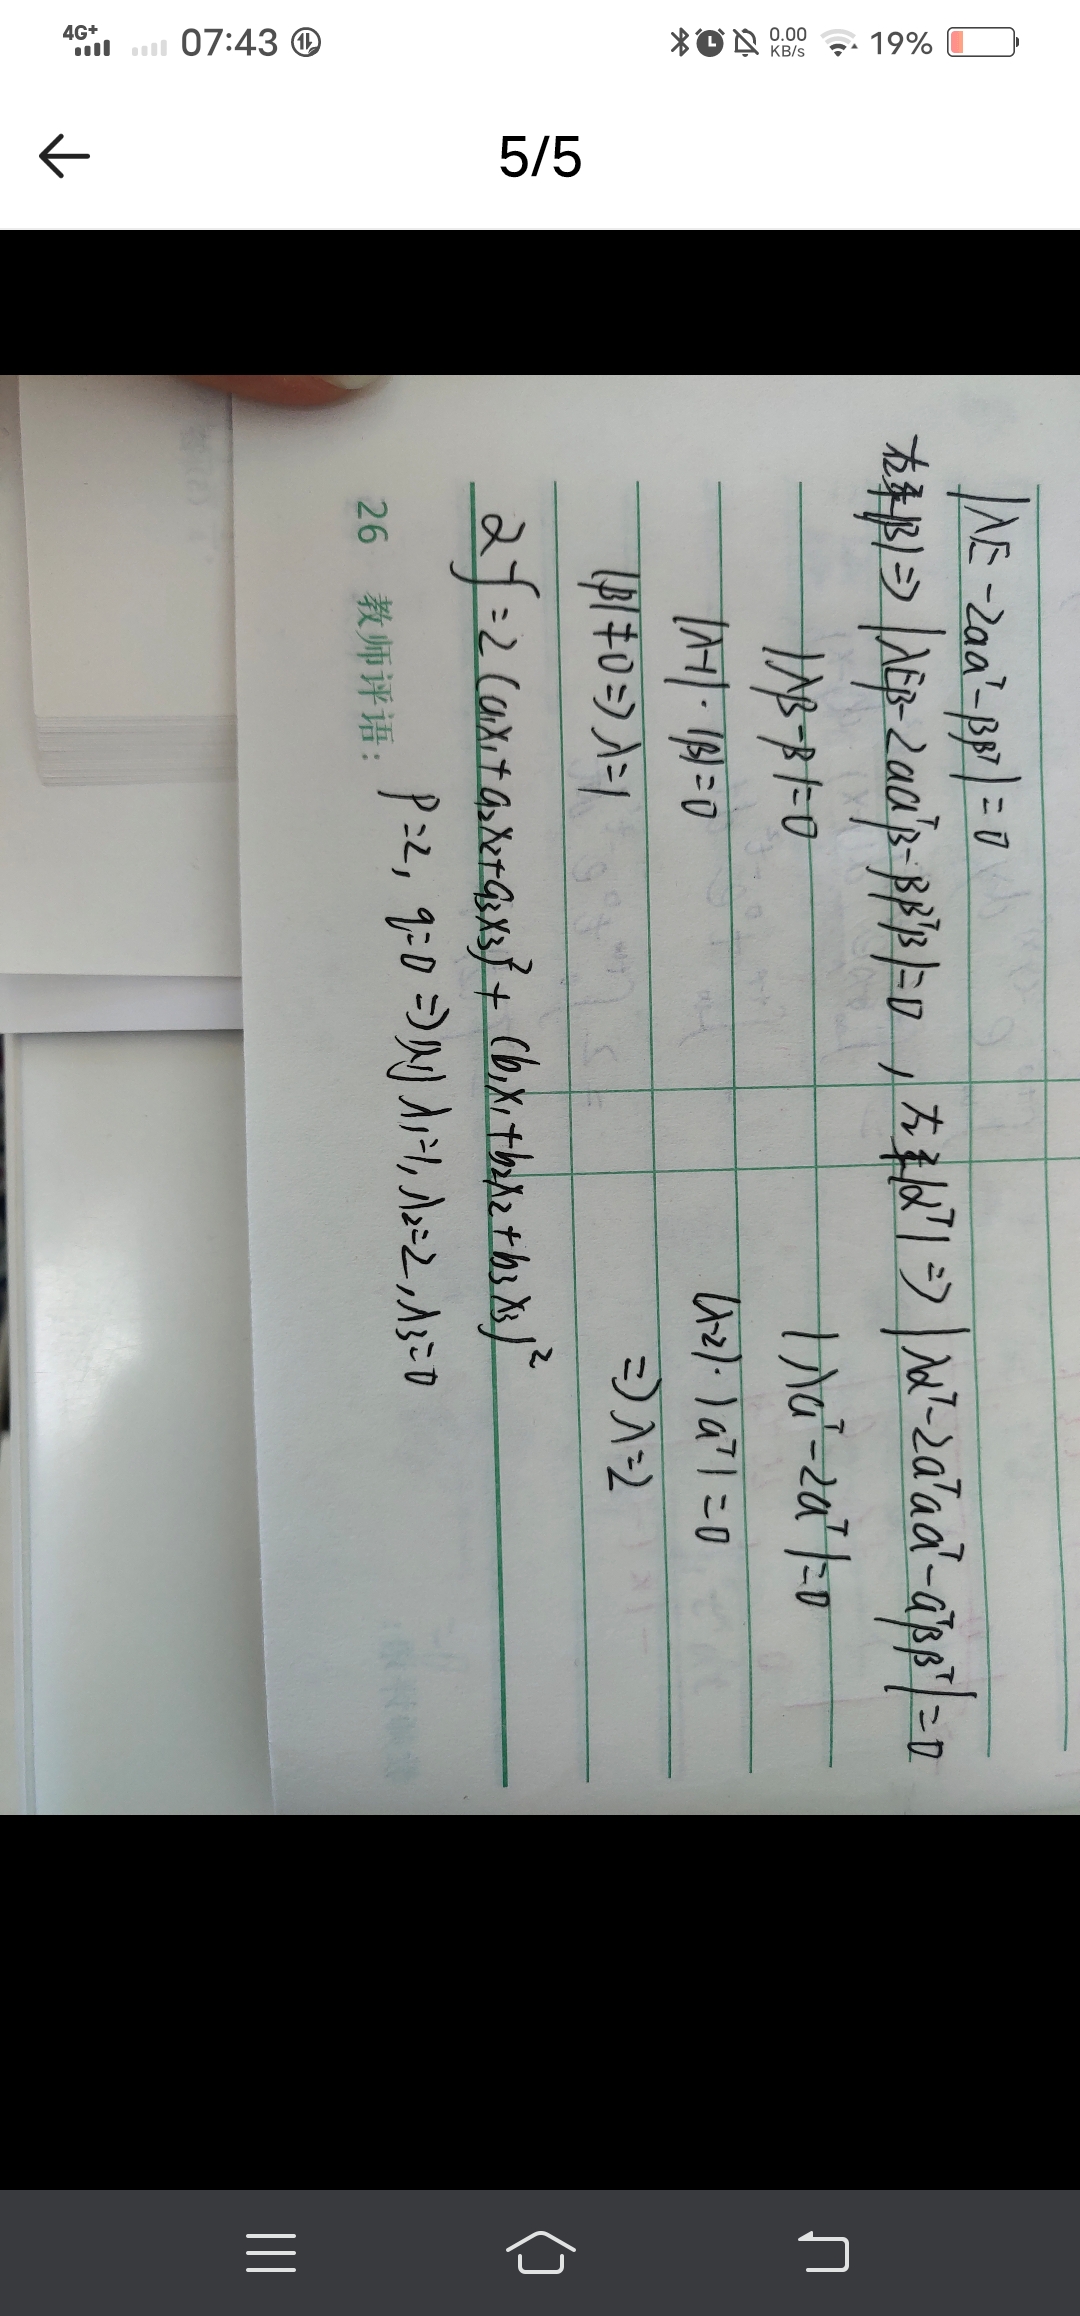 4G+ 07:43 0.00 KB/s 19%
5/5
|λE-2aaᵀ-ββᵀ|=0
右乘|β|⇒|λEβ-2aaᵀβ-ββᵀβ|=0, 左乘|αᵀ|⇒|λαᵀ-2aᵀaaᵀ-aᵀββᵀ|=0
|λβ-β|=0 |λaᵀ-2aᵀ|=0
|λ-1|·|β|=0 (λ-2)·|aᵀ|=0
|β|≠0⇒λ=1 ⇒λ=2
2f=2(a₁x₁+a₂x₂+a₃x₃)²+(b₁x₁+b₂x₂+b₃x₃)²
P=2, q=0⇒则λ₁=1,λ₂=2,λ₃=0
26 教师评语: